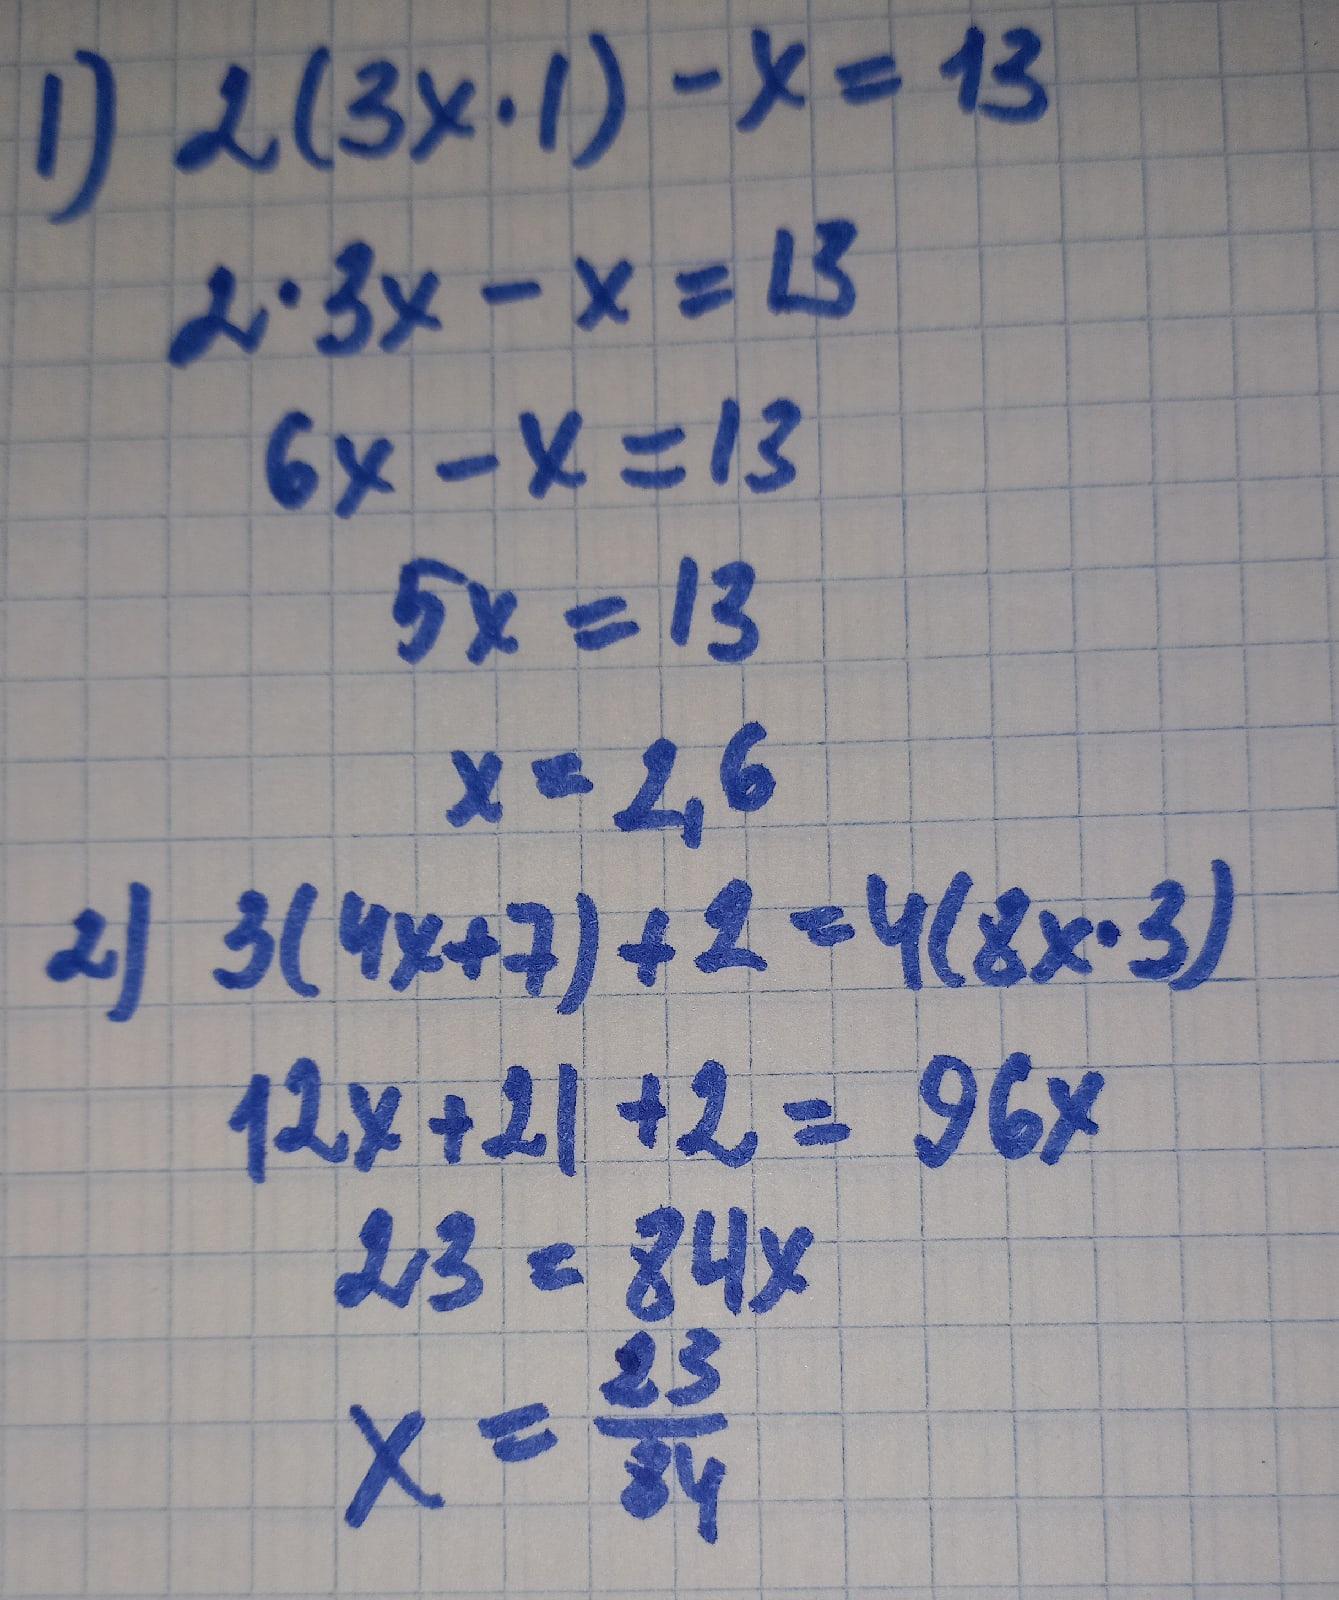 1) 2(3x·1) - x = 13
2·3x - x = 13
6x - x = 13
5x = 13
x = 2,6
2) 3(4x+7) + 2 = 4(8x·3)
12x + 21 + 2 = 96x
23 = 84x
x = 23/84